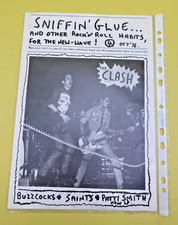 SNIFFIN' GLUE...
AND OTHER ROCK'N'ROLL HABITS,
FOR THE NEW-WAVE! ④ OCT '76
CLASH
BUZZCOCKS • SAINTS • PATTI SMITH